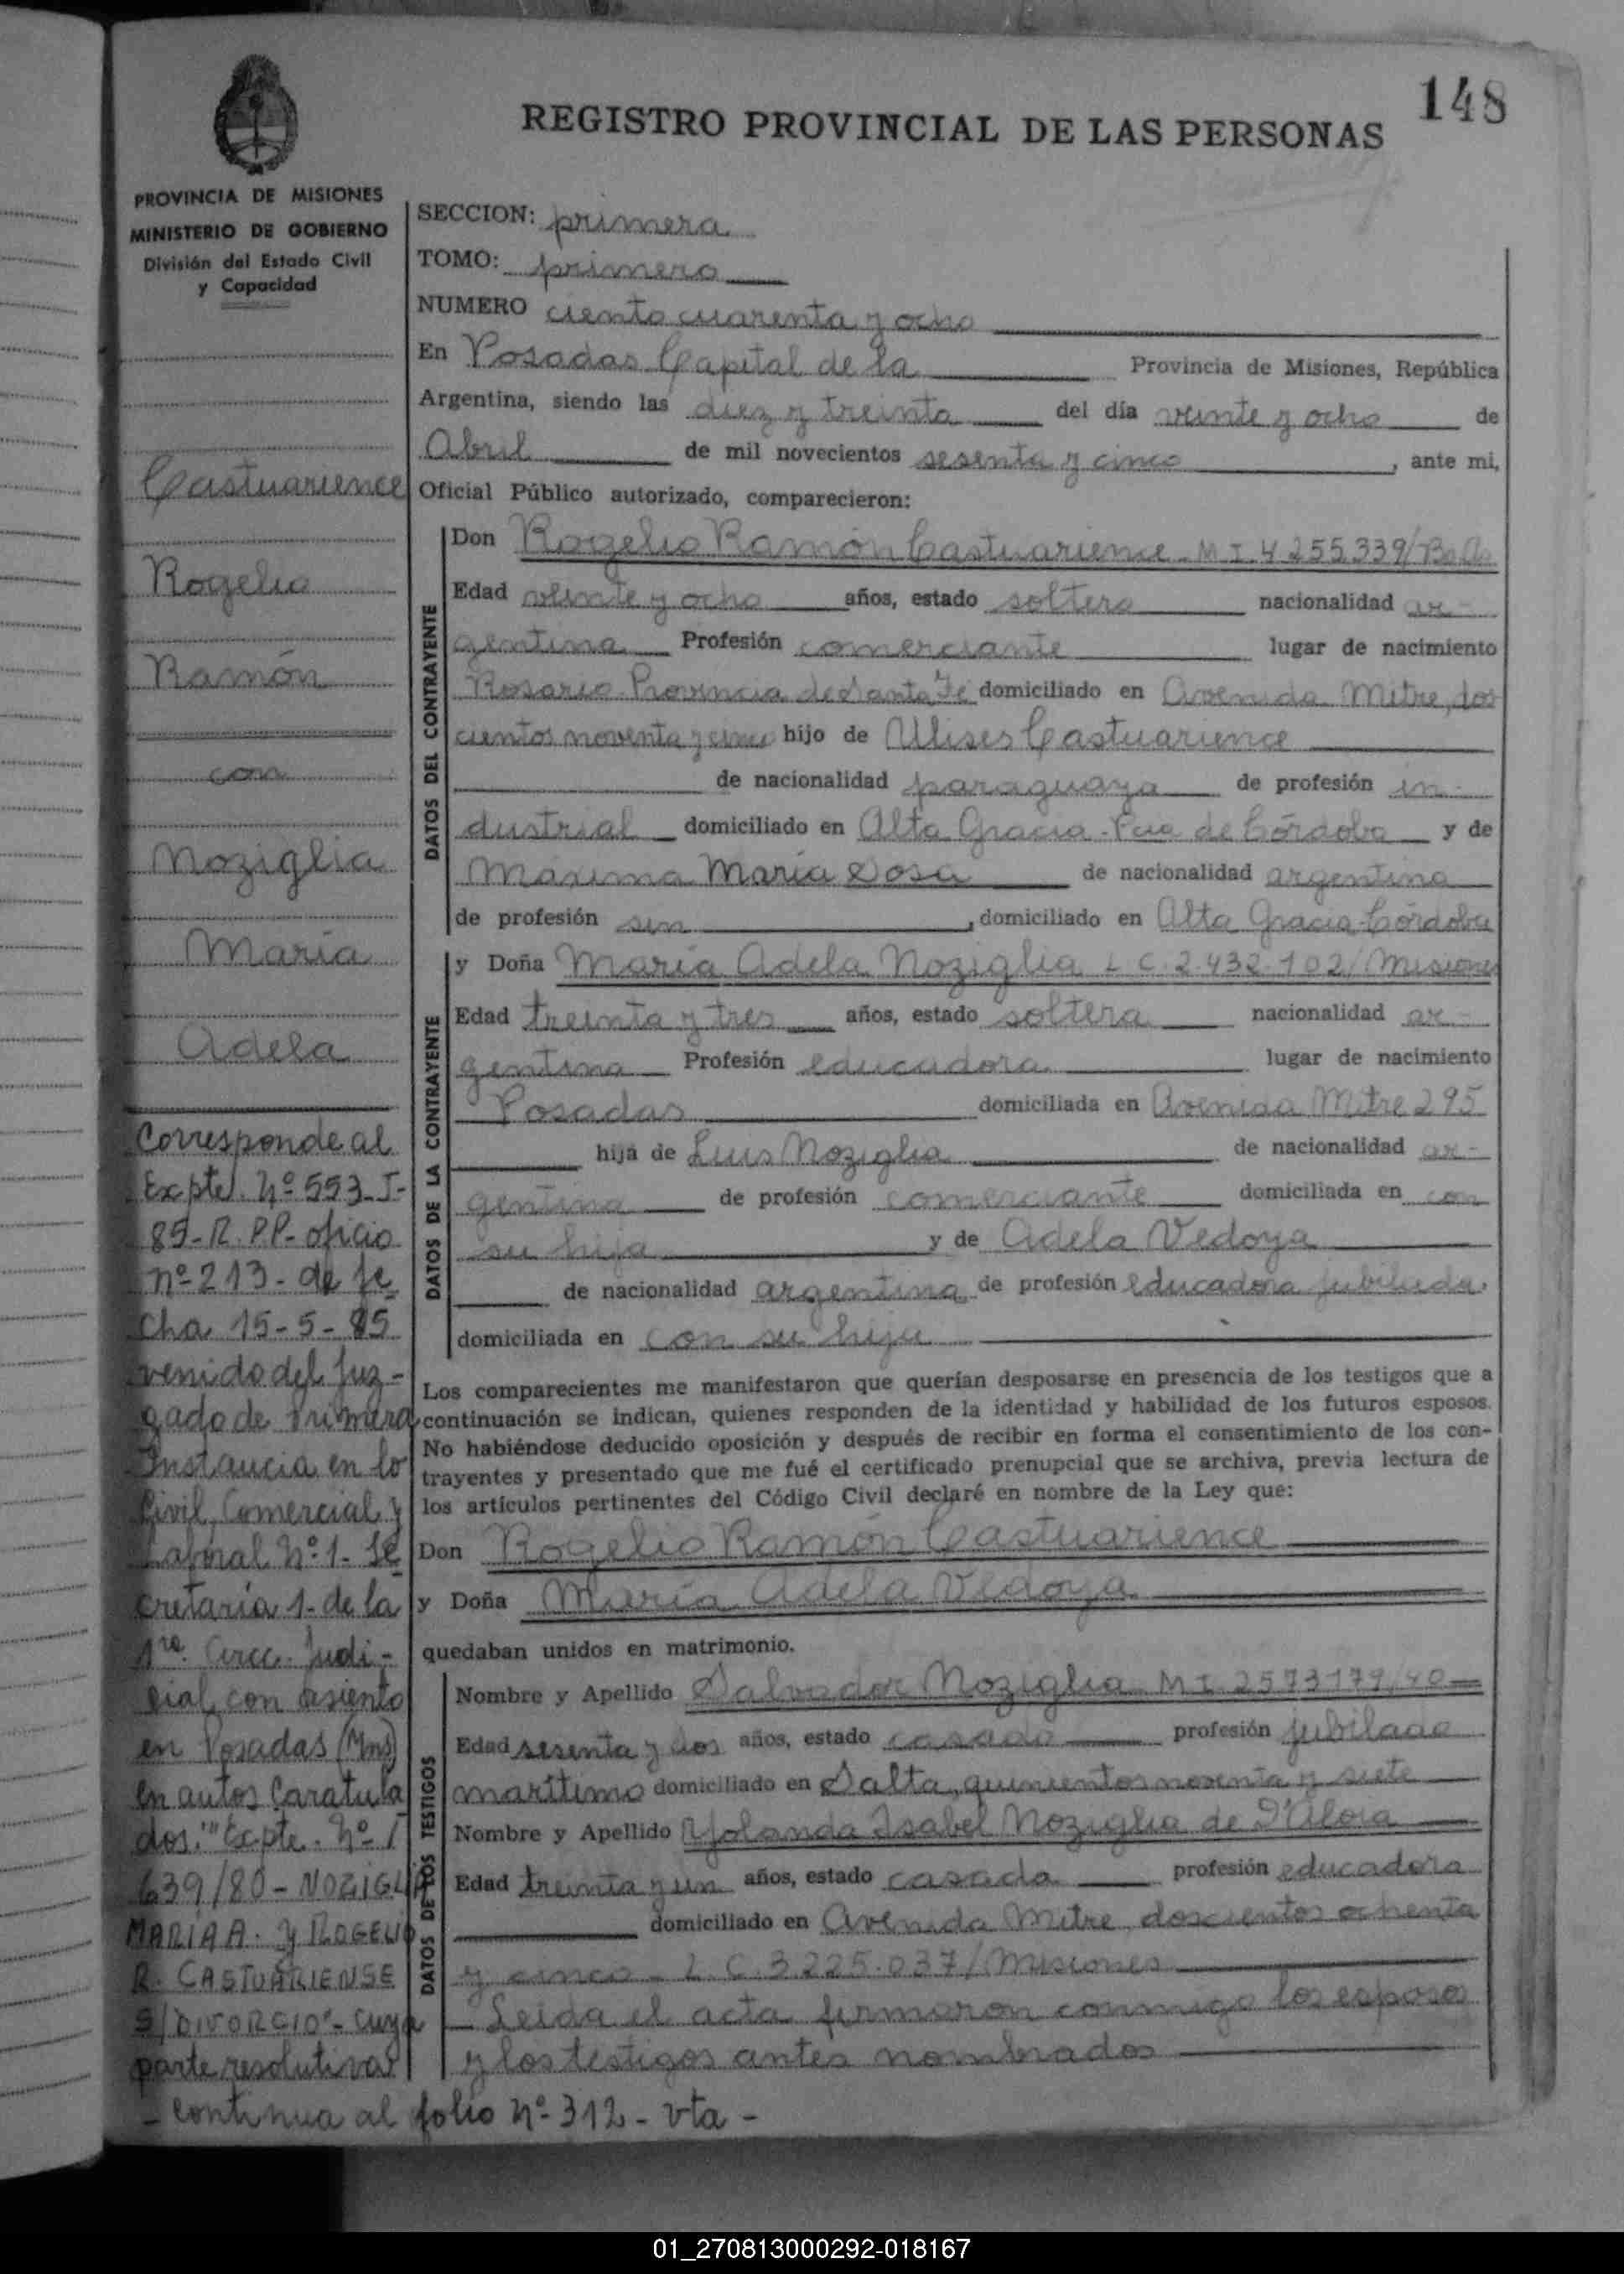 148
REGISTRO PROVINCIAL DE LAS PERSONAS
PROVINCIA DE MISIONES
MINISTERIO DE GOBIERNO
División del Estado Civil
y Capacidad
Castuarience
Rogelio
Ramón
con
Noziglia
María
Adela
Corresponde al
Expte. Nº 553-J-
85-R.P.P- oficio
nº 213- de fe
cha 15-5-85
venido del Juz-
gado de Primera
Instancia en lo
Civil, Comercial y
Laboral Nº 1- Se
cretaría 1- de la
1ra. Circc. Judi-
cial con asiento
en Posadas (Mns)
en autos Caratula
dos: "Expte. Nº 1
639/80 - NOZIGLIA
MARIA A. y ROGELIO
R. CASTUARIENSE
S/DIVORCIO"- cuya
parte resolutiva
- Continua al folio Nº 312 - vta -
SECCION: primera
TOMO: primero
NUMERO ciento cuarenta y ocho
En Posadas Capital de la Provincia de Misiones, República
Argentina, siendo las diez y treinta del día veinte y ocho de
Abril de mil novecientos sesenta y cinco, ante mi,
Oficial Público autorizado, comparecieron:
DATOS DEL CONTRAYENTE
Don Rogelio Ramón Castuarience - M I. 4 255.339/Bs.As
Edad veinte y ocho años, estado soltero nacionalidad ar-
gentina Profesión comerciante lugar de nacimiento
Rosario Provincia de Santa Fé domiciliado en Avenida Mitre, dos
cientos noventa y cinco hijo de Ulises Castuarience
de nacionalidad paraguaya de profesión in-
dustrial domiciliado en Alta Gracia - Pcia de Córdoba y de
Máxima María Sosa de nacionalidad argentina
de profesión sin, domiciliado en Alta Gracia - Córdoba
DATOS DE LA CONTRAYENTE
y Doña María Adela Noziglia L C. 2.432.102/Misiones
Edad treinta y tres años, estado soltera nacionalidad ar-
gentina Profesión educadora lugar de nacimiento
Posadas domiciliada en Avenida Mitre 295
hija de Luis Noziglia de nacionalidad ar-
gentina de profesión comerciante domiciliada en con
su hija y de Adela Vedoya
de nacionalidad argentina de profesión educadora jubilada.
domiciliada en con su hija
Los comparecientes me manifestaron que querían desposarse en presencia de los testigos que a
continuación se indican, quienes responden de la identidad y habilidad de los futuros esposos.
No habiéndose deducido oposición y después de recibir en forma el consentimiento de los con-
trayentes y presentado que me fué el certificado prenupcial que se archiva, previa lectura de
los artículos pertinentes del Código Civil declaré en nombre de la Ley que:
Don Rogelio Ramón Castuarience
y Doña María Adela Vedoya
quedaban unidos en matrimonio.
DATOS DE LOS TESTIGOS
Nombre y Apellido Salvador Noziglia M I. 2573179/40
Edad sesenta y dos años, estado casado profesión jubilado
marítimo domiciliado en Salta, quinientos noventa y siete
Nombre y Apellido Yolanda Isabel Noziglia de
Edad treinta y un años, estado casada profesión educadora
domiciliado en Avenida Mitre doscientos ochenta
y cinco - L. C. 3.225.037/Misiones
- Leida el acta firmaron conmigo los esposos
y los testigos antes nombrados
01_270813000292-018167